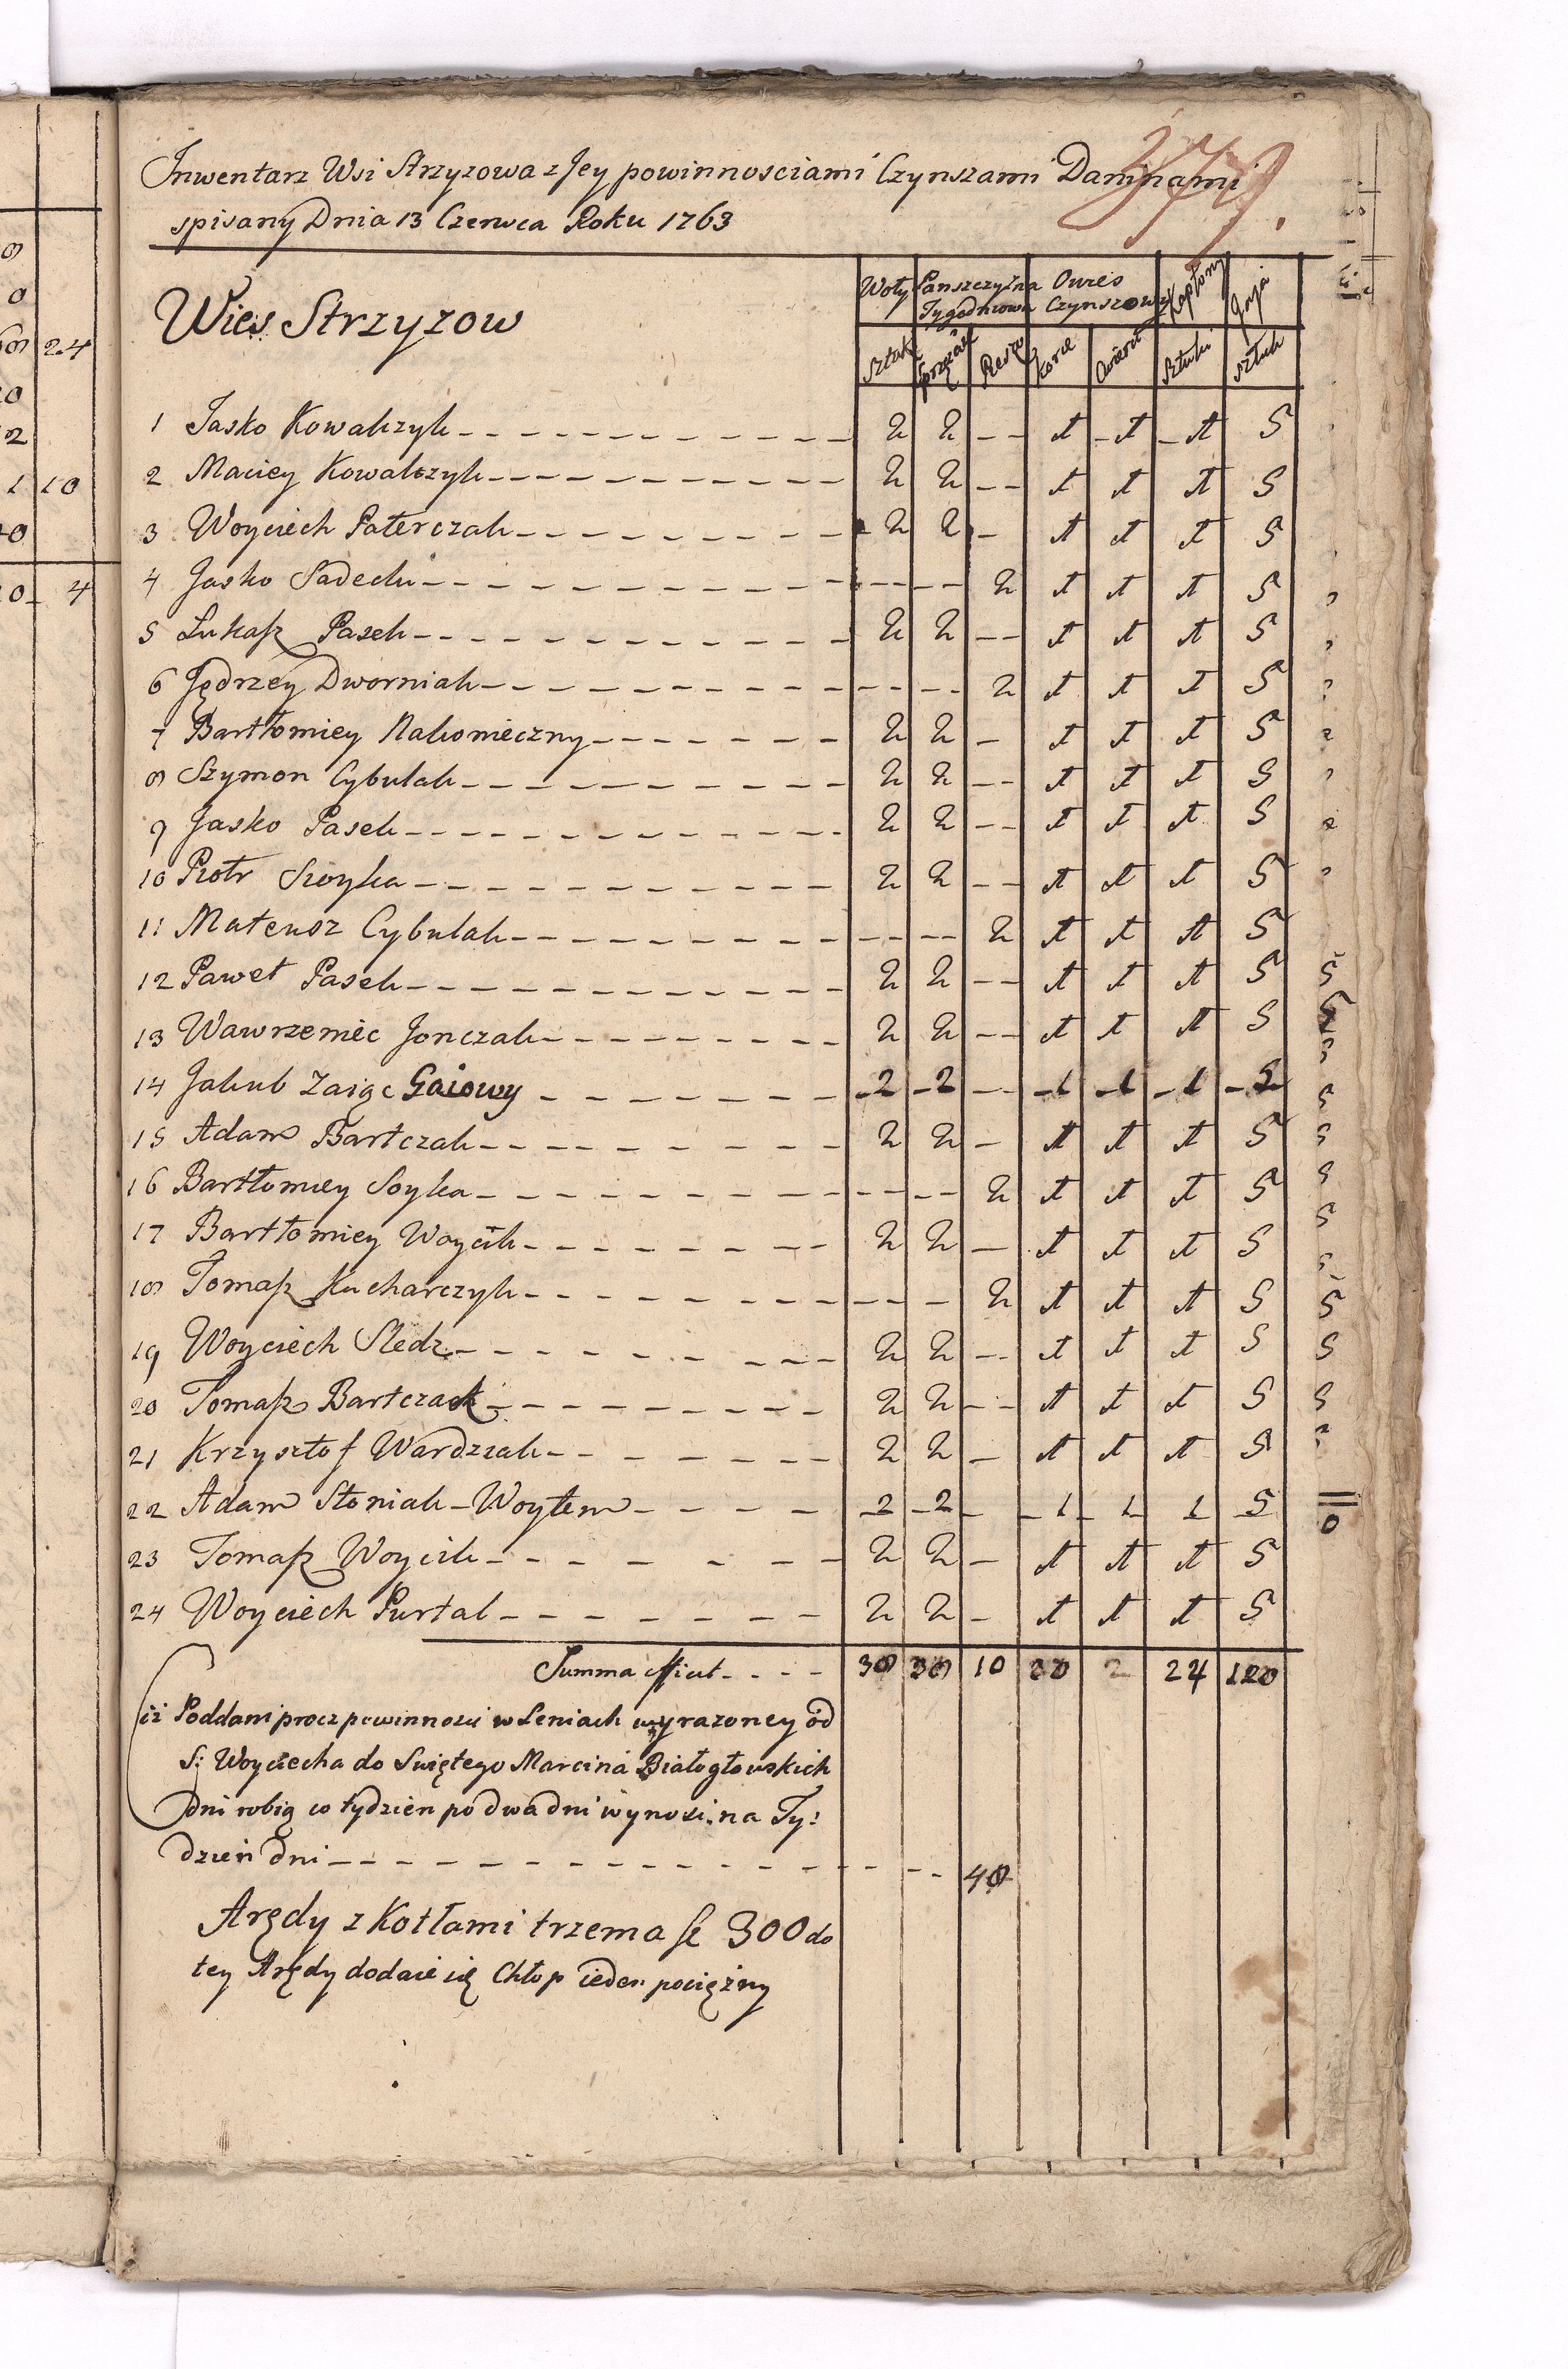 379.
Inwentarz Wsi Strzyzowa z Jey powinnosciami Czynszami Daninami
spisany Dnia 13 Czerwca Roku 1763
Wies Strzyzow
Woły Panszczyzna Tygodniowa Owies Czynszowy Kapłony Jaja
Sztuk Sprzężai Pieszo Korce Cwierci Sztuki Sztuk
1 Jasko Kowalczyk 2 2 1 1 1 5
2 Maciey Kowalczyk 2 2 1 1 1 5
3 Woyciech Paterczak 2 2 1 1 1 5
4 Jasko Sadecki 2 1 1 1 5
5 Lukasz Pasek 2 2 1 1 1 5
6 Jędrzey Dworniak 2 1 1 1 5
7 Bartłomiey Nakonieczny 2 2 1 1 1 5
8 Szymon Cybulak 2 2 1 1 1 5
9 Jasko Pasek 2 2 1 1 1 5
10 Piotr Soyka 2 2 1 1 1 5
11 Mateusz Cybulak 2 1 1 1 5
12 Paweł Pasek 2 2 1 1 1 5
13 Wawrzeniec Jonczak 2 2 1 1 1 5
14 Jakub Zaiąc Gaiowy 2 2 1 1 1 5
15 Adam Bartczak 2 2 1 1 1 5
16 Bartłomiey Soyka 2 1 1 1 5
17 Bartłomiey Woycik 2 2 1 1 1 5
18 Tomasz Kucharczyk 2 1 1 1 5
19 Woyciech Sledz 2 2 1 1 1 5
20 Tomasz Bartczack 2 2 1 1 1 5
21 Krzysztof Wardziak 2 2 1 1 1 5
22 Adam Słoniak - Woytem 2 2 1 1 1 5
23 Tomasz Woycik 2 2 1 1 1 5
24 Woyciech Purtal 2 2 1 1 1 5
Summa 38 38 10 30 2 24 120
iż Poddani procz powinnosci w Leniach wyrazoney od
S: Woyciecha do Swiętego Marcina Białogłowskich
dni robią co tydzien po dwa dni wynosi na Ty:
dzień dni 48
Arędy z Kotłami trzema 300 do
tey Arędy dodaie się Chłop ieden pociężny